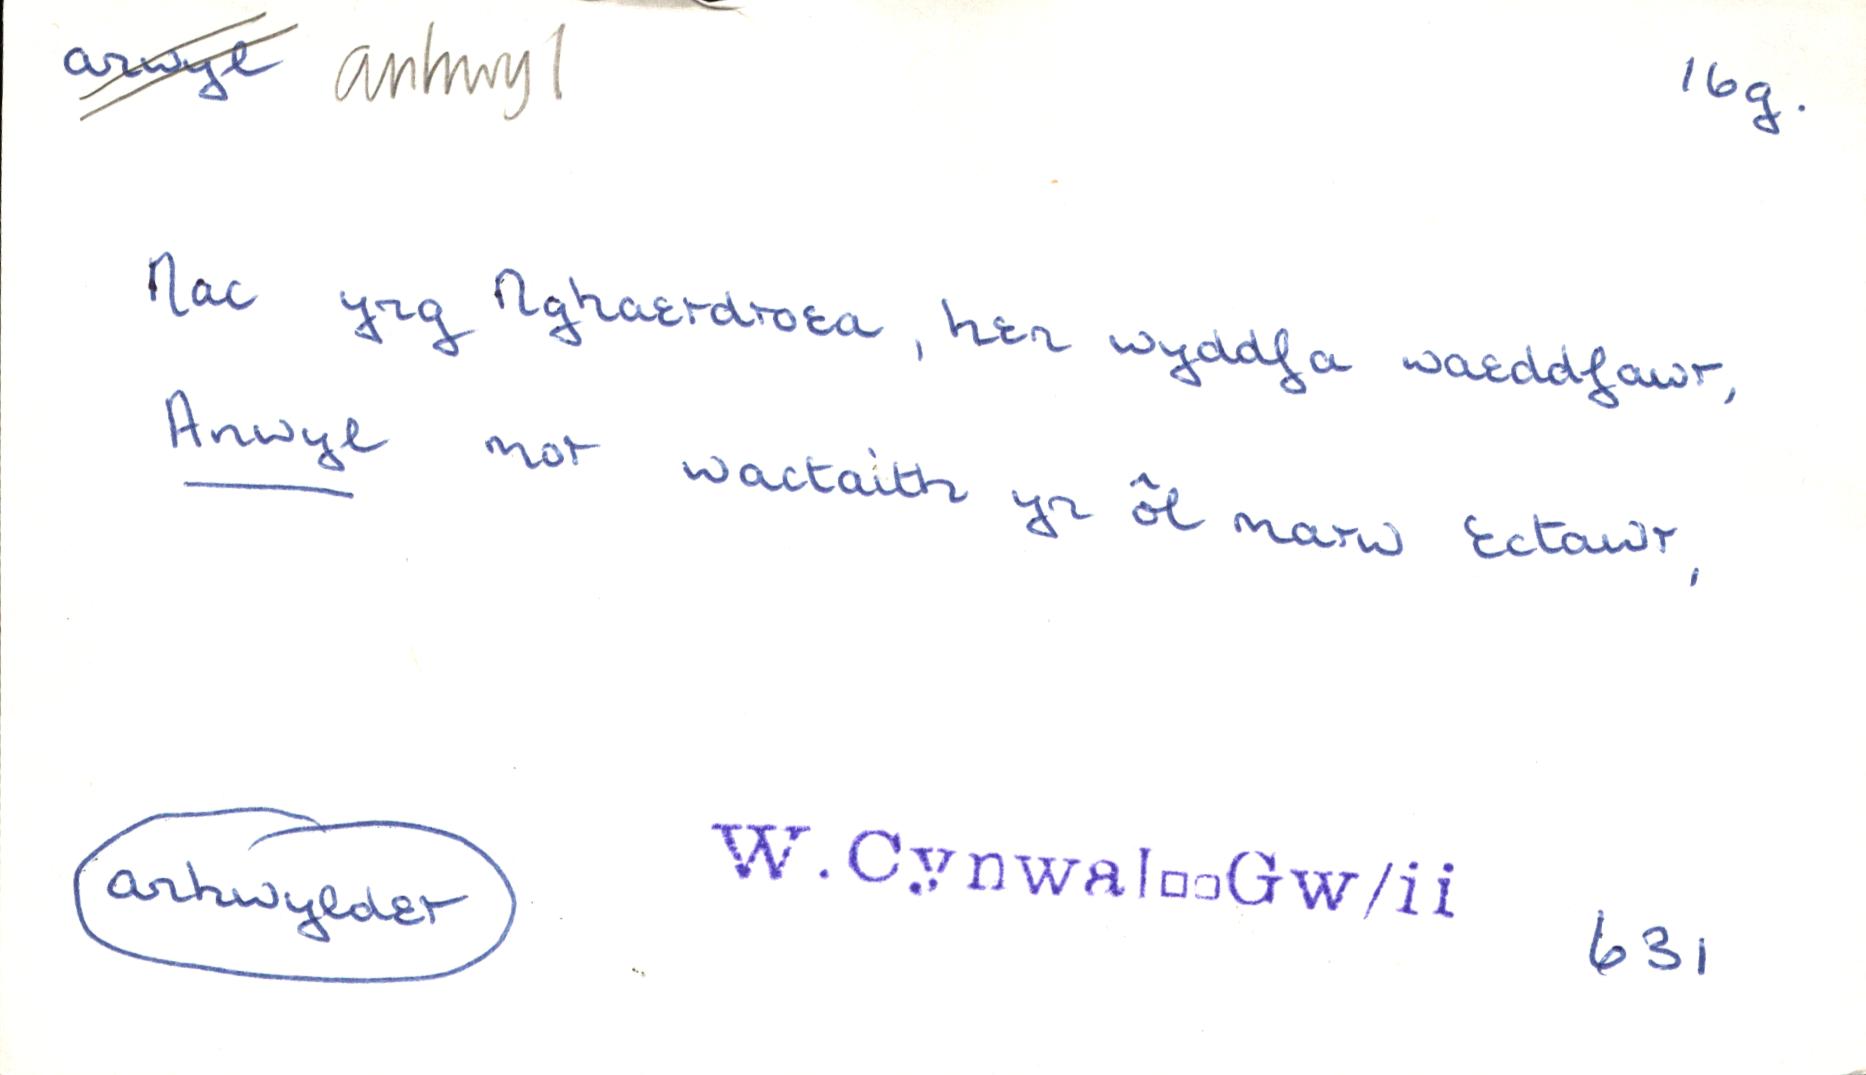 anwyl anhwyl 16g.
Nac yng Nghaerdroea, hen wyddfa waeddfawr,
Anwyl mor wactaith yn ôl marw Ectawr,
anhwylder W.Cynwal□□Gw/ii 631